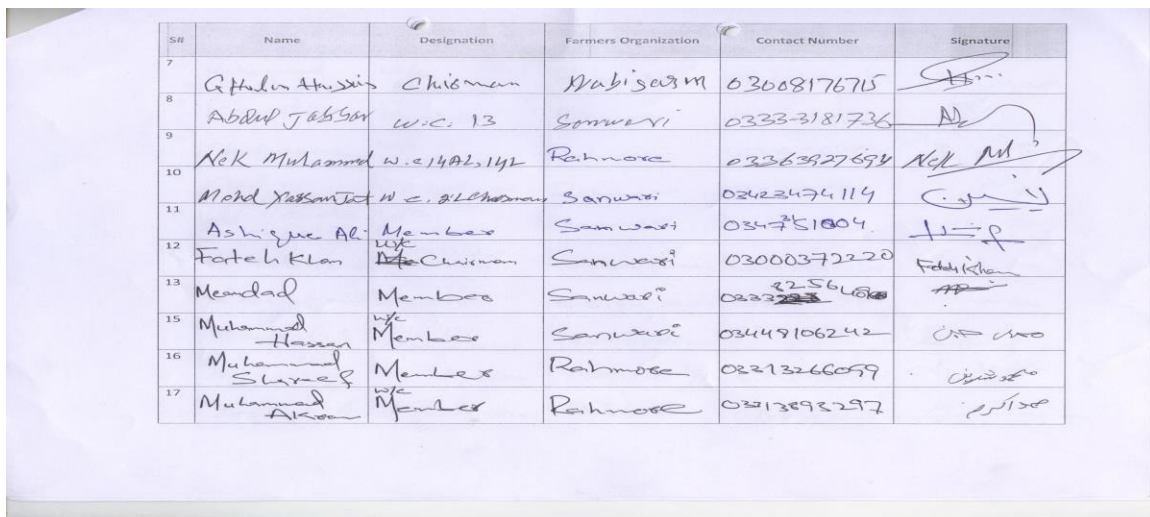 S# Name Designation Farmers Organization Contact Number Signature
7 Hussin Chisman Nabisarm 03008176715
8 Abdul Jabbar W.C. 13 Sanwari 0333-3181736
9
10 Nek Muhammd W.C 14AL, 14L Rahmore 03363927694 Nek M
Mohd Yassan Jat W C. 2L Chasman Sanwari 03423474114
11 Ashique Ali Member Sanwari
12 Fateh Khan W/C Chairman Sanwari 03000372220 Fateh Khan
13 Meandad Member Sanwari
15 Muhammad Hassan W/C Member Sanwari 03449106242 محمد حسن
16 Muhammad Shareef Member Rahmore 03313266099 محمد شریف
17 Muhammad Akram W/C Member Rahmore 0313893297 محمد اکرم